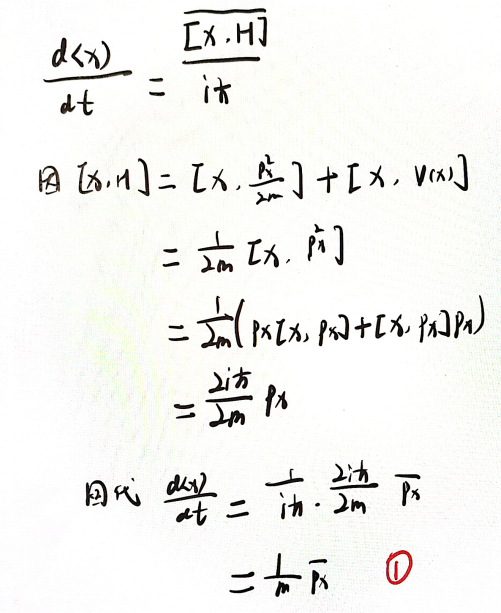 d<x>/dt = \overline{[x, H]}/iħ
因 [x, H] = [x, p_x^2/2m] + [x, V(x)]
= 1/2m [x, p_x^2]
= 1/2m (p_x[x, p_x] + [x, p_x]p_x)
= 2iħ/2m p_x
回代 d<x>/dt = 1/iħ · 2iħ/2m \overline{p_x}
= 1/m \overline{p_x} ①